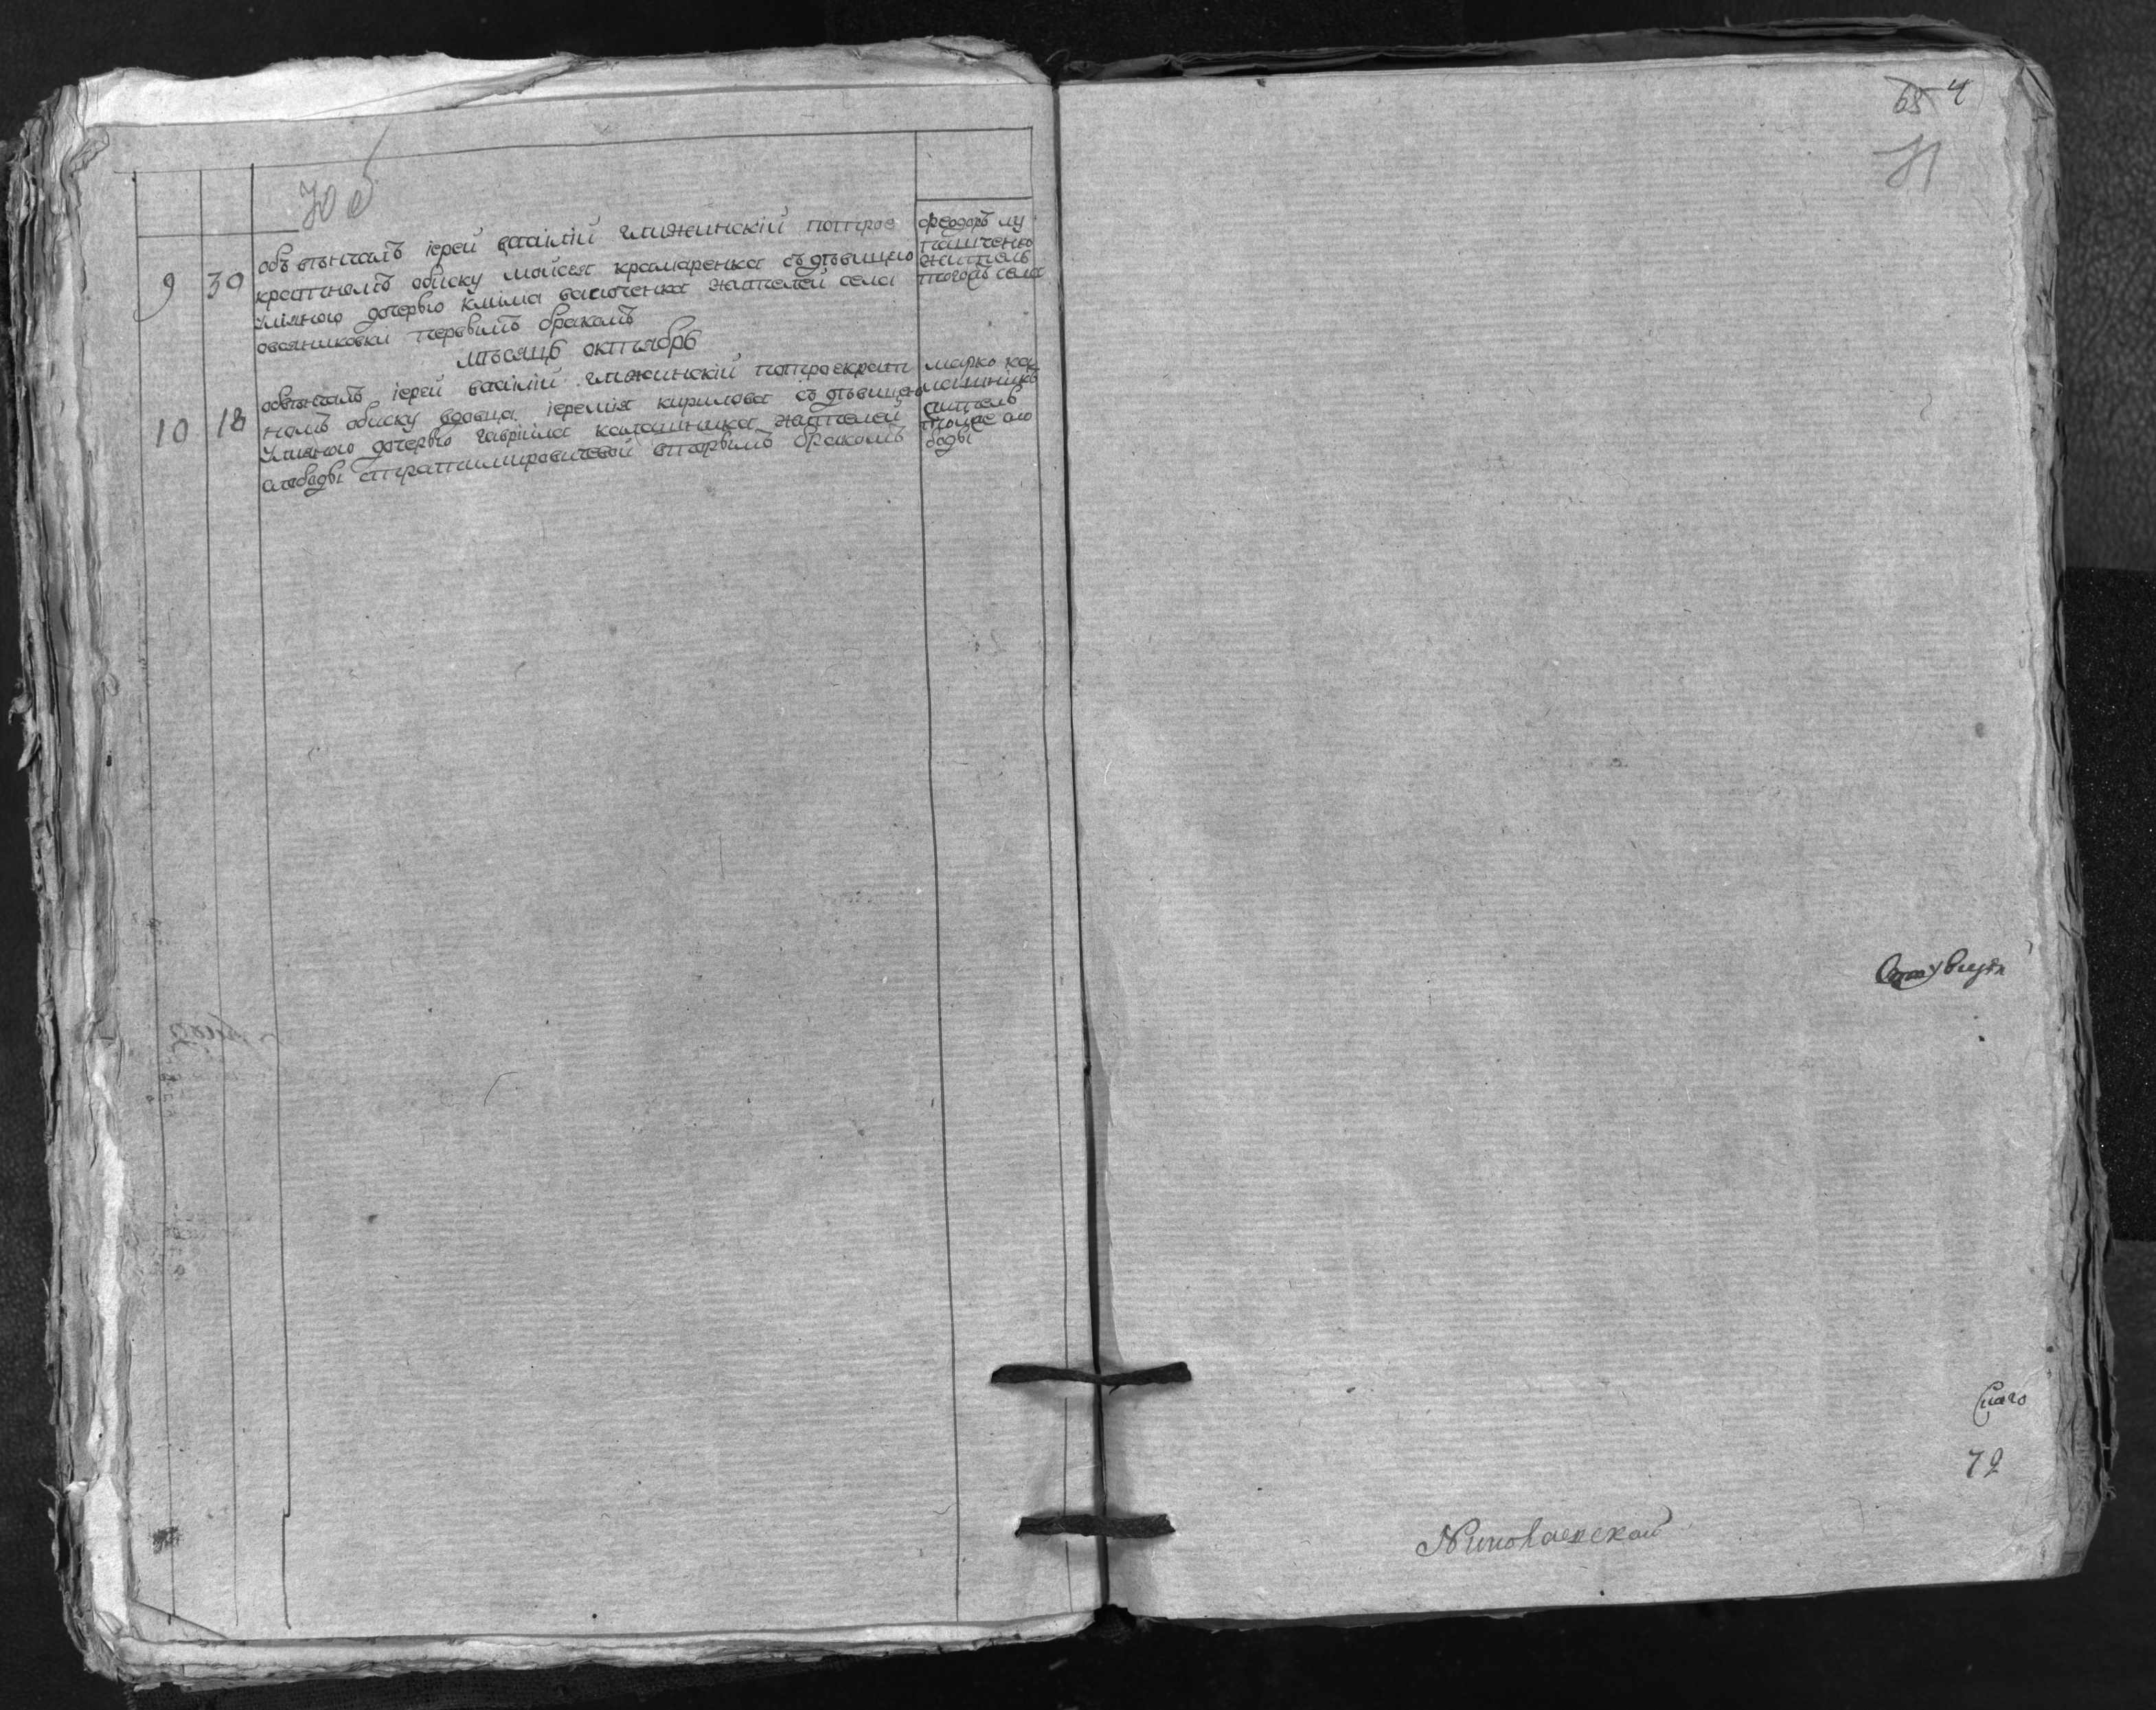 70 об
9 30 объвѣнчалъ іерей василій глижинскій потрое
кратномъ обиску мойсея крамаренка съ дѣвицею
уляною дочерью клима васюченка жителей села
овсяниковки первымъ бракомъ
феодоръ лу
пашченко
житель
тогожъ села
мѣсяцъ октябръ
10 18 обвѣнчалъ іерей василій глижинскій потроекрат
номъ обиску вдовца іеремія кирилова съ дѣвицею
уляною дочерью гавріила калашника жителей
слободы стратимировичевой вторымъ бракомъ
марко ка
лашникъ
житель
тоеже сло
боды
65 4
71
Сиаго
72
Николаевской